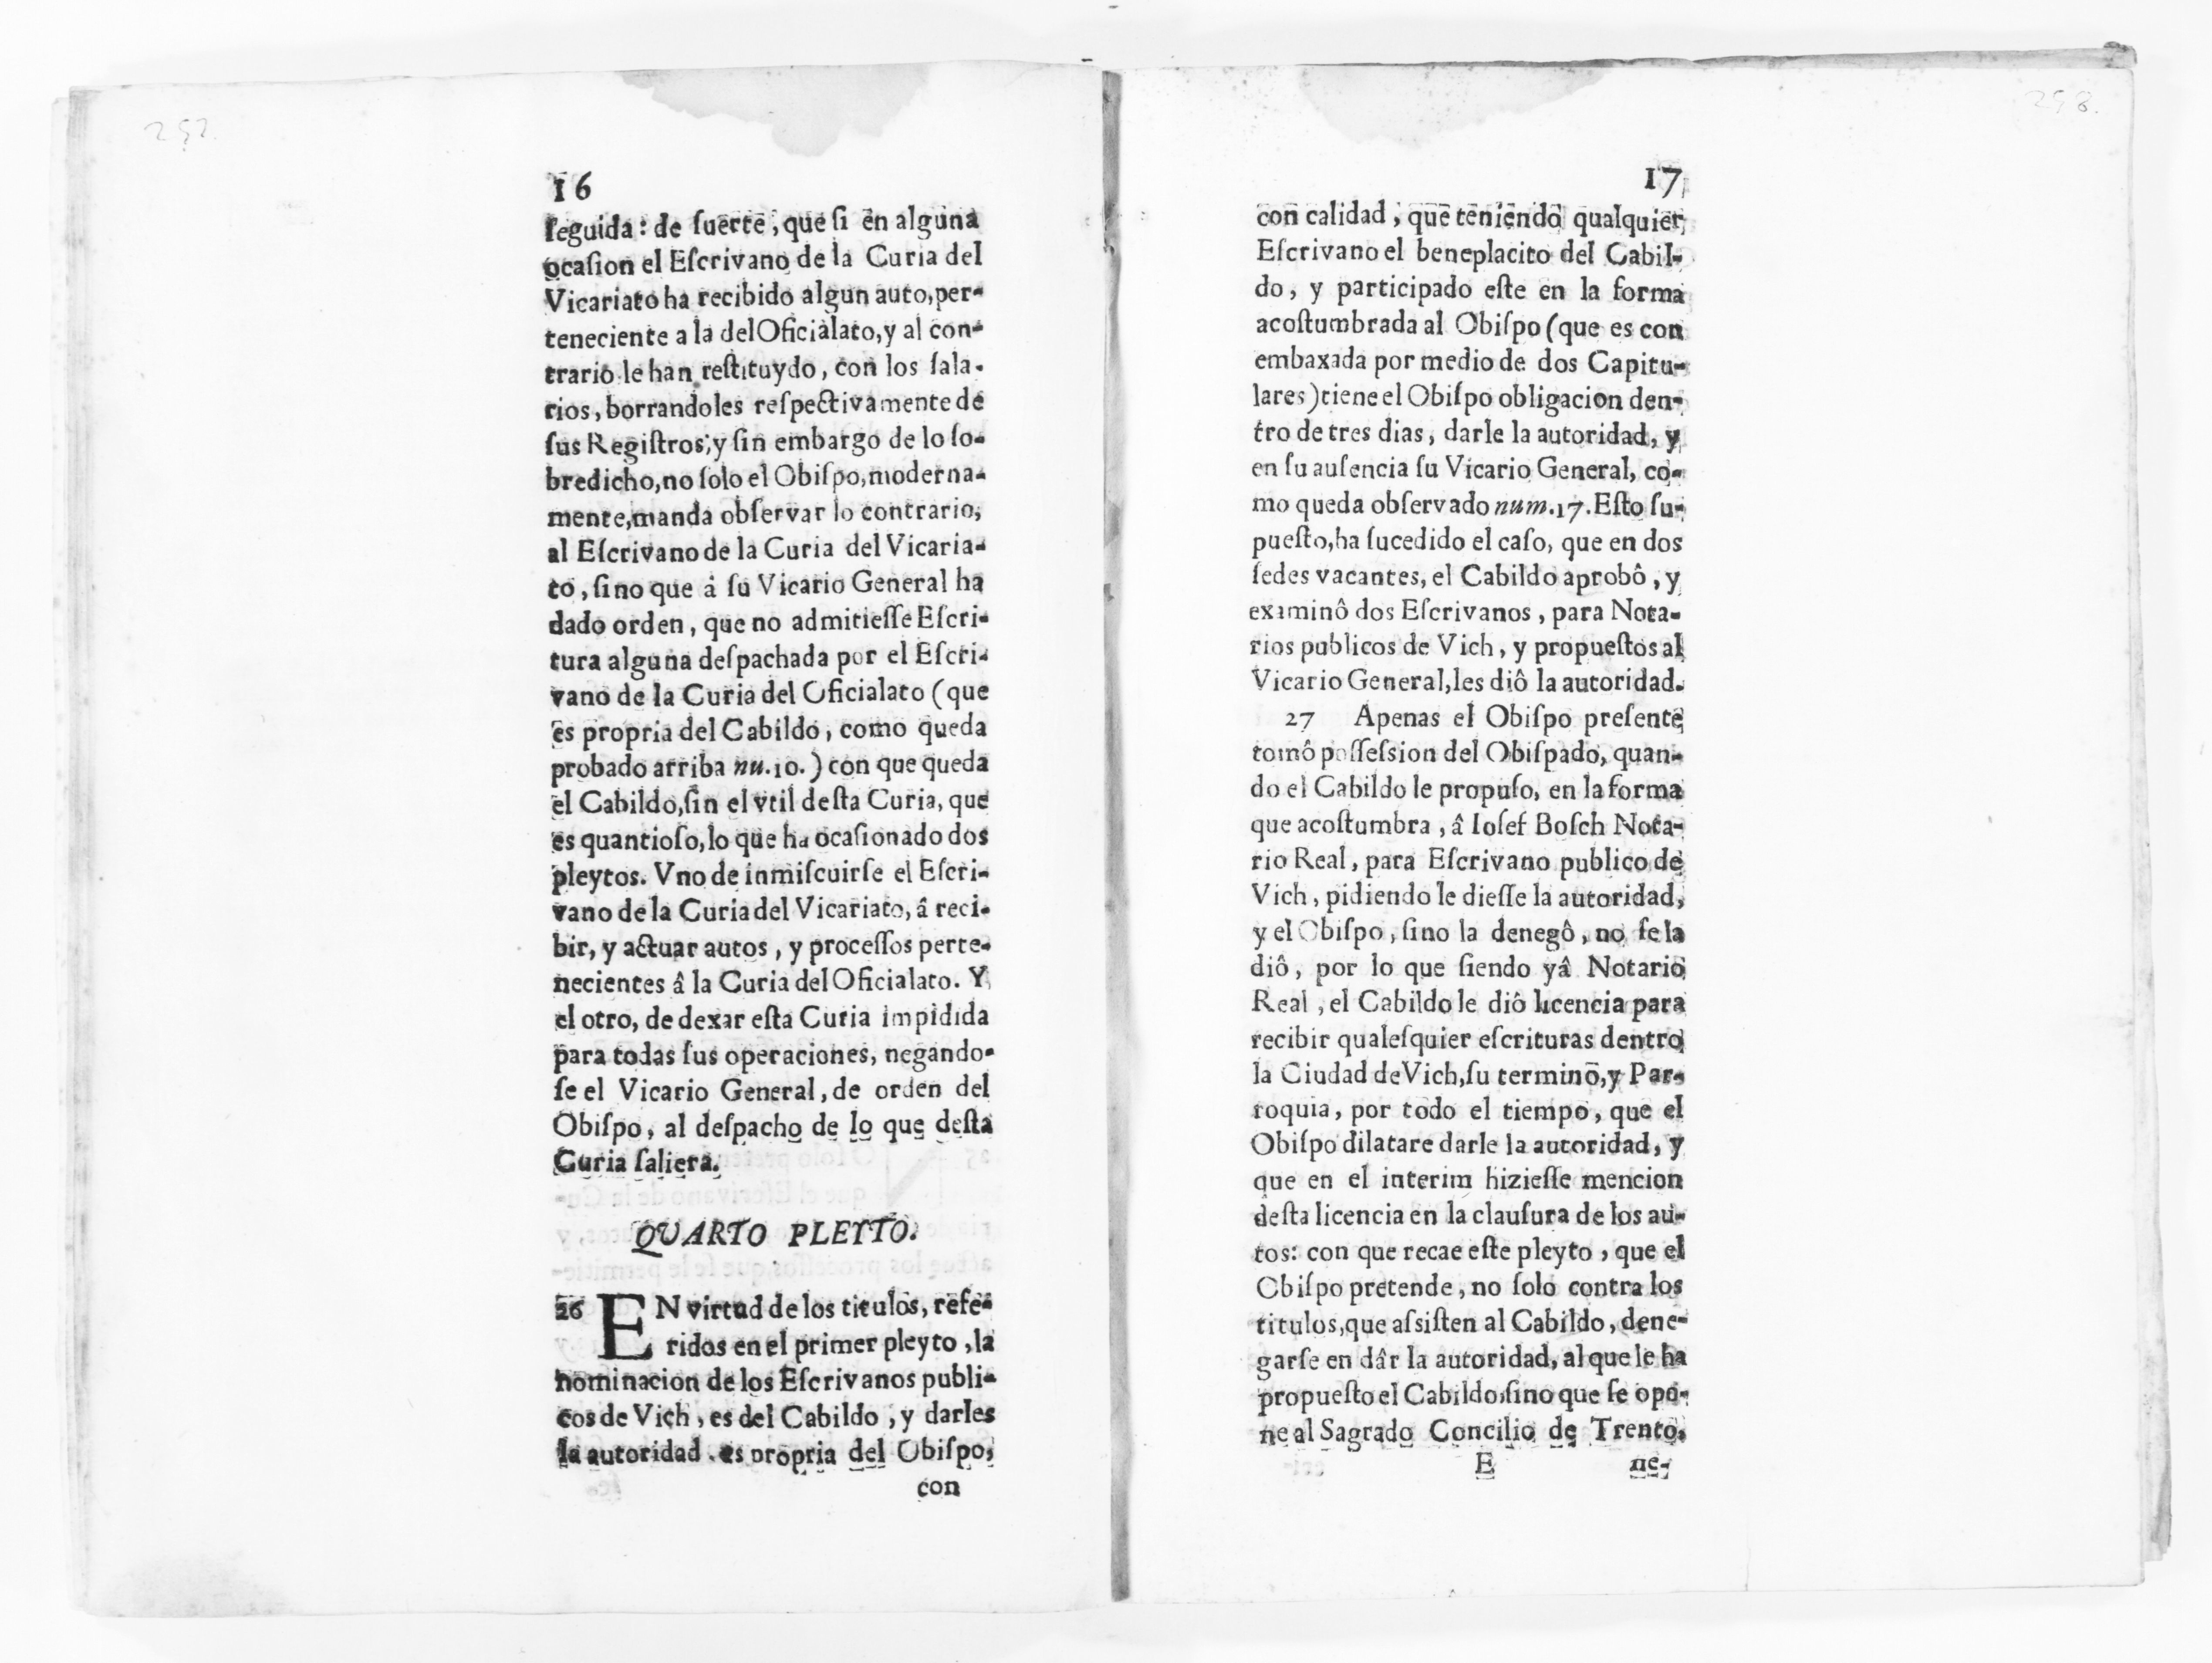 16
ſeguida: de ſuerte, que ſi en alguna
ocaſion el Eſcrivano de la Curia del
Vicariato ha recibido algun auto, per-
teneciente a la del Oficialato, y al con-
trario le han reſtituydo, con los ſala-
rios, borrandoles reſpectivamente de
ſus Regiſtros; y ſin embargo de lo ſo-
bredicho, no ſolo el Obiſpo, moderna-
mente, manda obſervar lo contrario,
al Eſcrivano de la Curia del Vicaria-
to, ſino que â ſu Vicario General ha
dado orden, que no admitieſſe Eſcri-
tura alguna deſpachada por el Eſcri-
vano de la Curia del Oficialato (que
es propria del Cabildo, como queda
probado arriba nu.10.) con que queda
el Cabildo, ſin el vtil deſta Curia, que
es quantioſo, lo que ha ocaſionado dos
pleytos. Vno de inmiſcuirſe el Eſcri-
vano de la Curia del Vicariato, â reci-
bir, y actuar autos, y proceſſos perte-
necientes â la Curia del Oficialato. Y
el otro, de dexar eſta Curia impidida
para todas ſus operaciones, negando-
ſe el Vicario General, de orden del
Obiſpo, al deſpacho de lo que deſta
Curia ſaliera.
QVARTO PLEYTO.
26 EN virtud de los titulos, refe-
ridos en el primer pleyto, la
nominacion de los Eſcrivanos publi-
cos de Vich, es del Cabildo, y darles
la autoridad, es propria del Obiſpo,
con
17
con calidad, que teniendo qualquier
Eſcrivano el beneplacito del Cabil-
do, y participado eſte en la forma
acoſtumbrada al Obiſpo (que es con
embaxada por medio de dos Capitu-
lares) tiene el Obiſpo obligacion den-
tro de tres dias, darle la autoridad, y
en ſu auſencia ſu Vicario General, co-
mo queda obſervado num.17. Eſto ſu-
pueſto, ha ſucedido el caſo, que en dos
ſedes vacantes, el Cabildo aprobô, y
examinô dos Eſcrivanos, para Nota-
rios publicos de Vich, y propueſtos al
Vicario General, les diô la autoridad.
27 Apenas el Obiſpo preſente
tomô poſſeſsion del Obiſpado, quan-
do el Cabildo le propuſo, en la forma
que acoſtumbra, â Ioſef Boſch Nota-
rio Real, para Eſcrivano publico de
Vich, pidiendo le dieſſe la autoridad,
y el Obiſpo, ſino la denegô, no ſe la
diô, por lo que ſiendo yâ Notario
Real, el Cabildo le diô licencia para
recibir qualeſquier eſcrituras dentro
la Ciudad de Vich, ſu termino, y Par-
roquia, por todo el tiempo, que el
Obiſpo dilatare darle la autoridad, y
que en el interim hizieſſe mencion
deſta licencia en la clauſura de los au-
tos: con que recae eſte pleyto, que el
Obiſpo pretende, no ſolo contra los
titulos, que aſsiſten al Cabildo, dene-
garſe en dâr la autoridad, al que le ha
propueſto el Cabildo, ſino que ſe opo-
ne al Sagrado Concilio de Trento,
E ne-